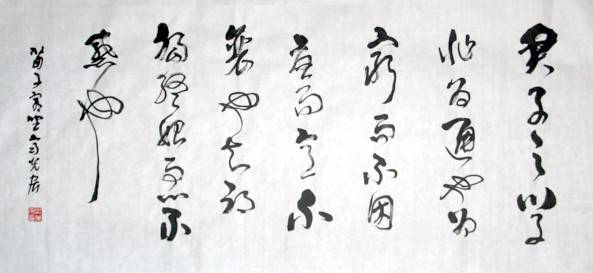 君子之學
非為通也為
窮而不困
憂而意不
衰也知禍
福終始而心不
惑也
荀子宥坐句